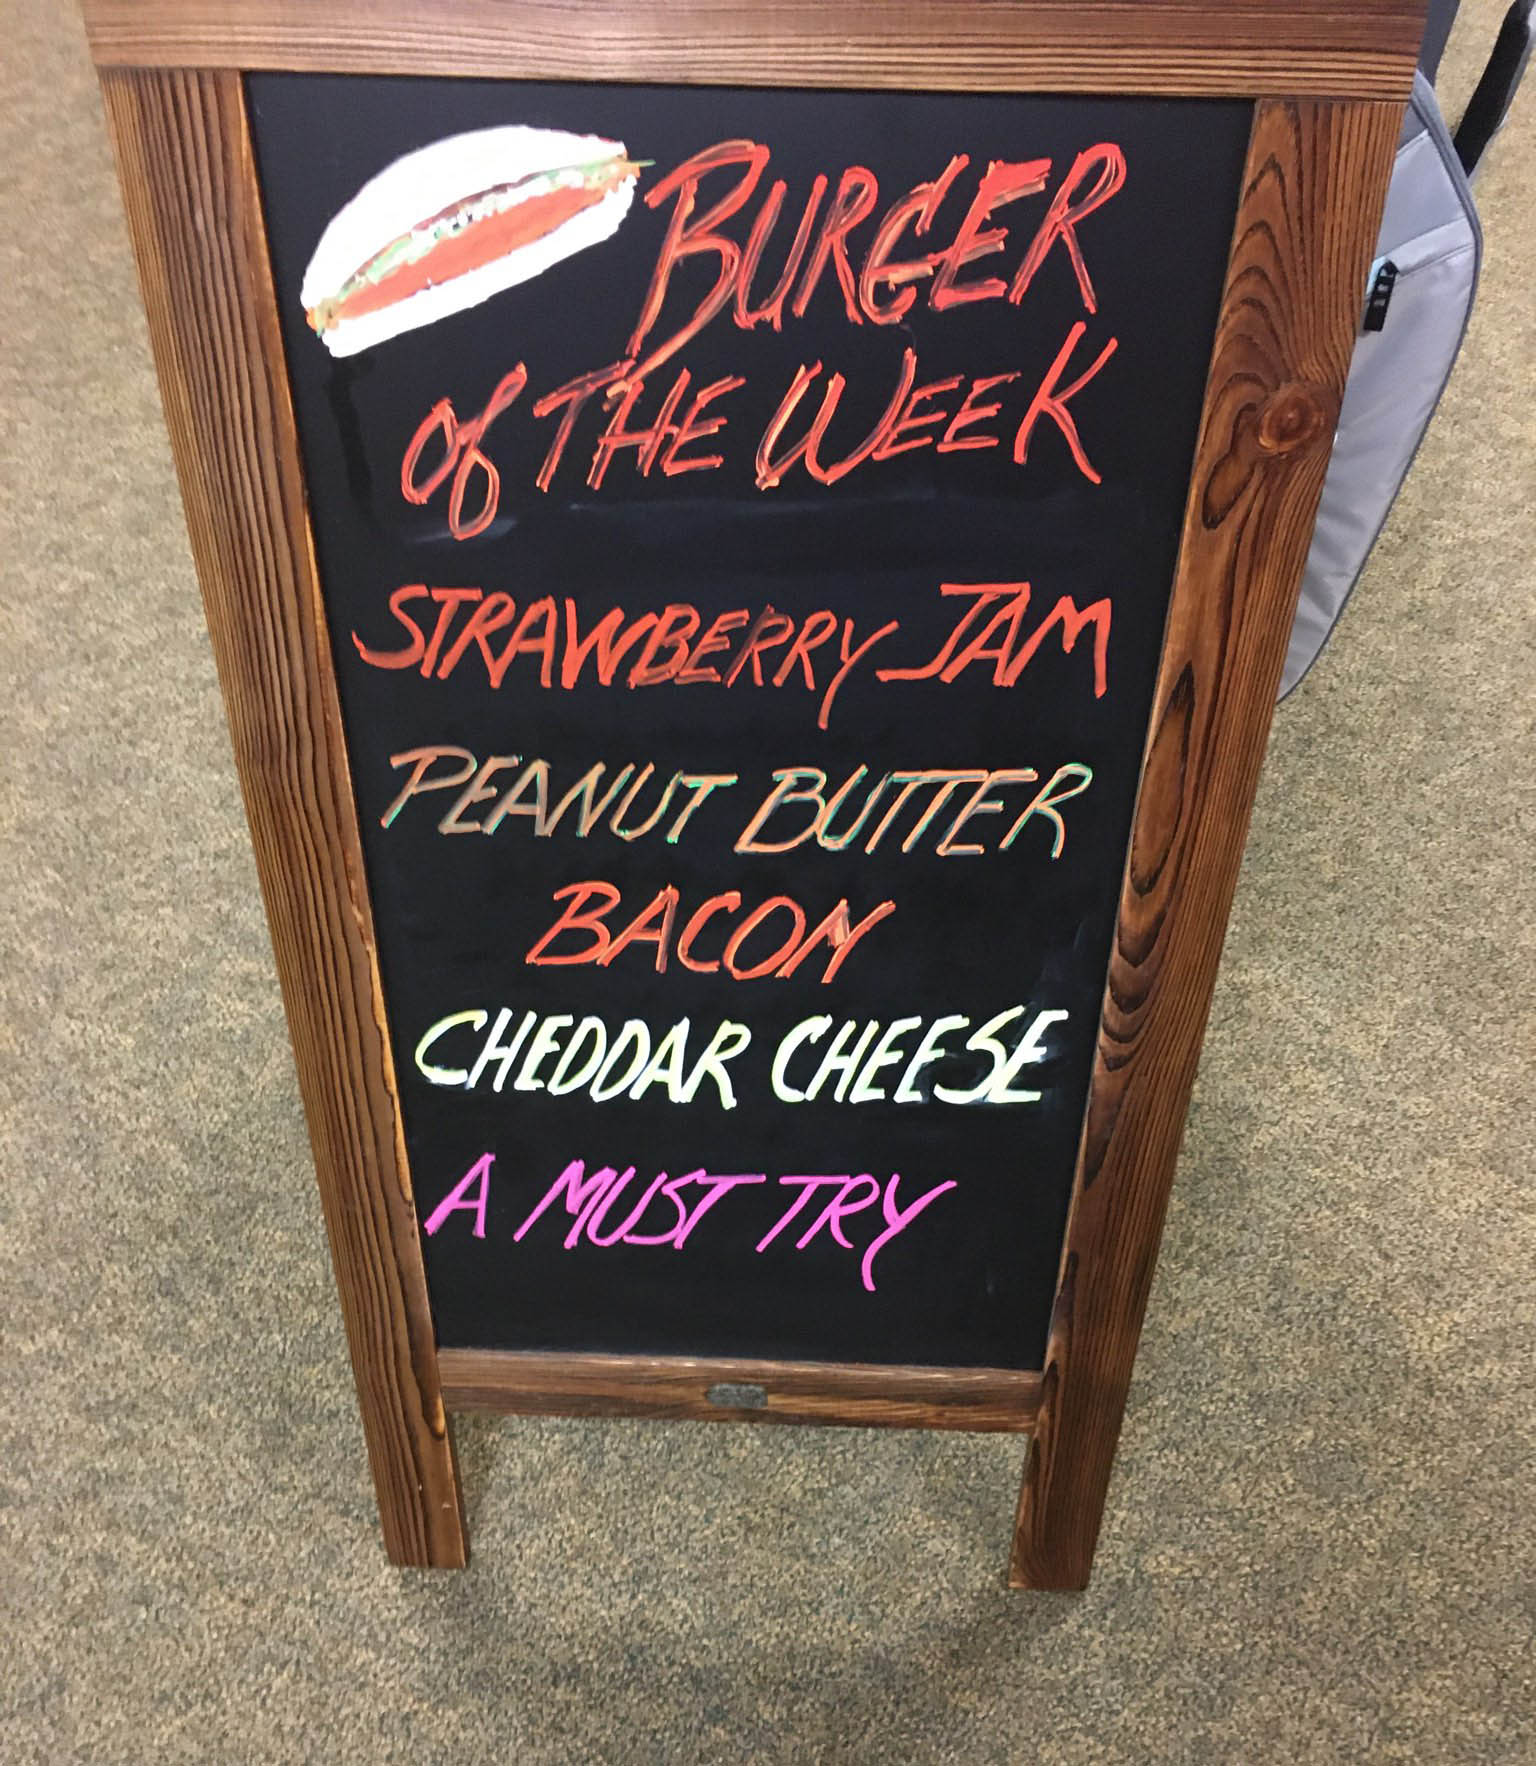 BURGER
of THE WEEK
STRAWBERRY JAM
PEANUT BUTTER
BACON
CHEDDAR CHEESE
A MUST TRY